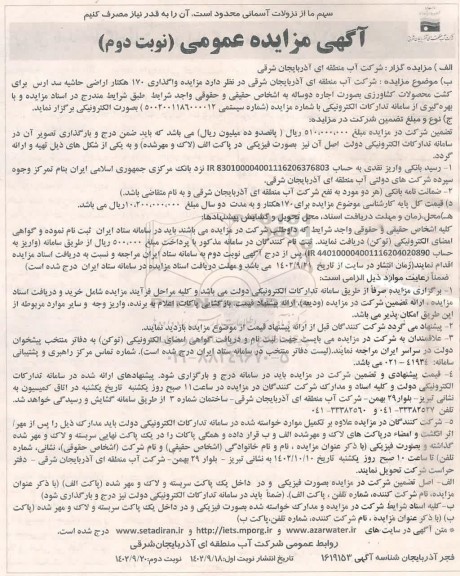 سهم ما از نزولات آسمانی محدود است، آن را به قدر نیاز مصرف کنیم
آگهی مزایده عمومی (نوبت دوم)
الف ) مزایده گزار : شرکت آب منطقه ای آذربایجان شرقی
ب) موضوع مزایده : شرکت آب منطقه ای آذربایجان شرقی در نظر دارد مزایده واگذاری ۱۷۰ هکتار اراضی حاشیه سد ارس برای
کشت محصولات کشاورزی بصورت اجاره دوساله به اشخاص حقیقی و حقوقی واجد شرایط طبق شرایط مندرج در اسناد مزایده و با
بهره گیری از سامانه تدارکات الکترونیکی با شماره مزایده (شماره سیستمی ۵۰۰۲۰۰۱۱۸۶۰۰۰۰۱۲) بصورت الکترونیکی برگزار نماید.
ج) نوع و مبلغ تضمین شرکت در مزایده:
تضمین شرکت در مزایده مبلغ ۵۱۰،۰۰۰،۰۰۰ ریال ( پانصدو ده میلیون ریال) می باشد که باید ضمن درج و بارگذاری تصویر آن در
سامانه تدارکات الکترونیکی دولت اصل آن نیز بصورت فیزیکی در پاکت الف (لاک و مهرشده) و به یکی از شکل های ذیل تهیه و ارائه
گردد.
۱- رسید بانکی واریز نقدی به حساب IR 830100004001116206376803 نزد بانک مرکزی جمهوری اسلامی ایران بنام تمرکز وجوه
سپرده شرکت های دولتی آب منطقه ای آذربایجان شرقی.
۲- ضمانت نامه بانکی (هر دو مورد به نفع شرکت آب منطقه ای آذربایجان شرقی و به نام متقاضی باشد.)
د) قیمت کل پایه کارشناسی موضوع مزایده برای ۱۷۰هکتار و به مدت دو سال مبلغ ۱۰،۲۰۰،۰۰۰،۰۰۰ ریال می باشد.
ه)محل،زمان و مهلت دریافت اسناد، محل تحویل و گشایش پیشنهادها:
کلیه اشخاص حقیقی / حقوقی واجد شرایط که داوطلب شرکت در مزایده می باشند باید در سامانه ستاد ایران ثبت نام نموده و گواهی
امضای الکترونیکی (توکن) دریافت نمایند. ثبت نام کنندگان در سامانه مذکور با پرداخت مبلغ ۵۰۰،۰۰۰ ریال از طریق سامانه (واریز به
حساب IR 440100004001116204020890) پس از درج آگهی نوبت دوم به سامانه ستاد ایران مراجعه و نسبت به دریافت اسناد مزایده
اقدام نمایند(زمان انتشار در سایت از تاریخ می باشد و مهلت دریافت اسناد مزایده در سامانه ستاد ایران درج شده است )
ضمنا رعایت موارد ذیل الزامی است:
۱- برگزاری مزایده صرفا از طریق سامانه تدارکات الکترونیکی دولت می باشد و کلیه مراحل فرآیند مزایده شامل خرید و دریافت اسناد
مزایده ، ارائه تضمین شرکت در مزایده (ودیعه)، ارائه پیشنهاد قیمت، بازگشایی پاکات، اعلام به برنده، واریز وجه و سایر موارد مربوطه از
این طریق امکان پذیر می باشد.
۲- پیشنهاد می گردد شرکت کنندگان قبل از ارائه پیشنهاد قیمت از موضوع مزایده بازدید نمایند.
۳- علاقمندان به شرکت در مزایده می بایست جهت ثبت نام و دریافت گواهی امضای الکترونیکی (توکن) به دفاتر منتخب پیشخوان
دولت در سراسر ایران مراجعه نمایند.(لیست دفاتر منتخب در سامانه ستاد ایران درج شده است). شماره تماس مرکز راهبری و پشتیبانی
: ۴۱۹۳۴ – ۰۲۱ می باشد.
۴- قیمت پیشنهادی و تضمین شرکت در مزایده باید در سامانه درج و بارگزاری شود. پیشنهادهای ارائه شده در سامانه تدارکات
الکترونیکی دولت و کلیه اسناد و مدارک شرکت کنندگان در مزایده در ساعت۱۱ صبح روز یکشنبه تاریخ یکشنبه در اتاق کمیسیون به
نشانی تبریز– بلوار۲۹ بهمن– شرکت آب منطقه ای آذربایجان شرقی– ساختمان شماره ۳ از طریق سامانه گشایش و رسیدگی خواهد شد.
تلفن ۳۳۳۸۲۵۲۷-۰۴۱ و ۳۳۳۸۲۵۶۰-۰۴۱
۵- شرکت کنندگان در مزایده علاوه بر تکمیل موارد خواسته شده در سامانه تدارکات الکترونیکی دولت باید مدارک ذیل را پس از مهر/
اثر انگشت و امضاء درپاکت های لاک و مهرشده الف و ب قرار داده و همگی پاکات را در یک پاکت نهایی سربسته و لاک و مهر شده
گذاشته و بصورت فیزیکی (با ذکر عنوان مزایده ، نام و نام خانوادگی (اشخاص حقیقی) و نام شرکت (اشخاص حقوقی)، نشانی، شماره
تلفن) تا ساعت ۱۰ صبح روز یکشنبه تاریخ ۱۴۰۲/۱۰/۱۰ به نشانی تبریز – بلوار ۲۹ بهمن– شرکت آب منطقه ای آذربایجان شرقی – دفتر
حراست شرکت تحویل نمایند.
الف- اصل تضمین شرکت در مزایده بصورت فیزیکی و در داخل یک پاکت سربسته و لاک و مهر شده (پاکت الف) (با ذکر عنوان
مزایده، نام شرکت کننده، شماره تلفن ، پاکت الف). (ضمناً باید در سامانه تدارکات الکترونیکی دولت نیز درج و بارگذاری شود)
ب- کلیه اسناد شرایط شرکت در مزایده و مدارک خواسته شده بصورت فیزیکی و در داخل یک پاکت سربسته و لاک و مهر شده (پاکت
ب) (با ذکر عنوان مزایده ، نام شرکت کننده، شماره تلفن،پاکت ب)
* متن آگهی در سایت های www.azarwater.ir و http://iets.mporg.ir و www.setadiran.ir درج شده است.
روابط عمومی شرکت آب منطقه ای آذربایجان‌شرقی
فجر آذربایجان شناسه آگهی ۱۶۱۹۱۵۳ تاریخ انتشار نوبت اول: ۱۴۰۲/۹/۱۸ نوبت دوم:۱۴۰۲/۹/۲۰